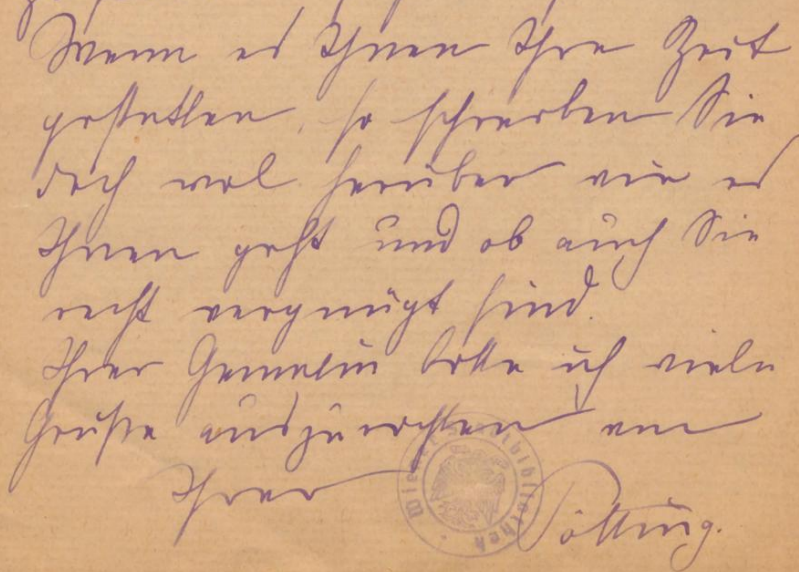 Wenn es Ihnen Ihre Zeit
gestatten, so schreiben Sie
doch wol herüber wie es
Ihnen geht und ob auch Sie
recht vergnügt sind.
Ihrer Gemalin bitte ich viele
Grüße auszurichten von
Ihrer Pötting.
Wiener Stadtbibliothek